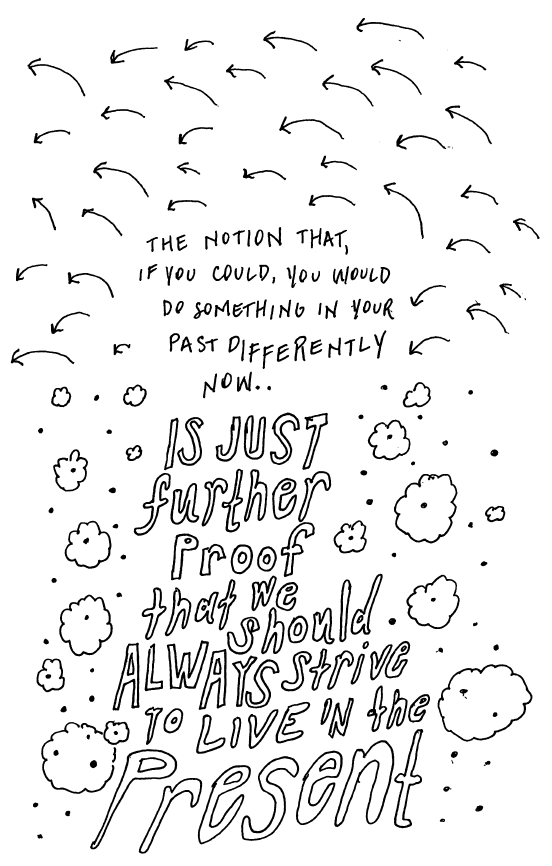 THE NOTION THAT,
IF YOU COULD, YOU WOULD
DO SOMETHING IN YOUR
PAST DIFFERENTLY
NOW..
IS JUST
further
Proof
that we
should
ALWAYS strive
TO LIVE IN the
Present